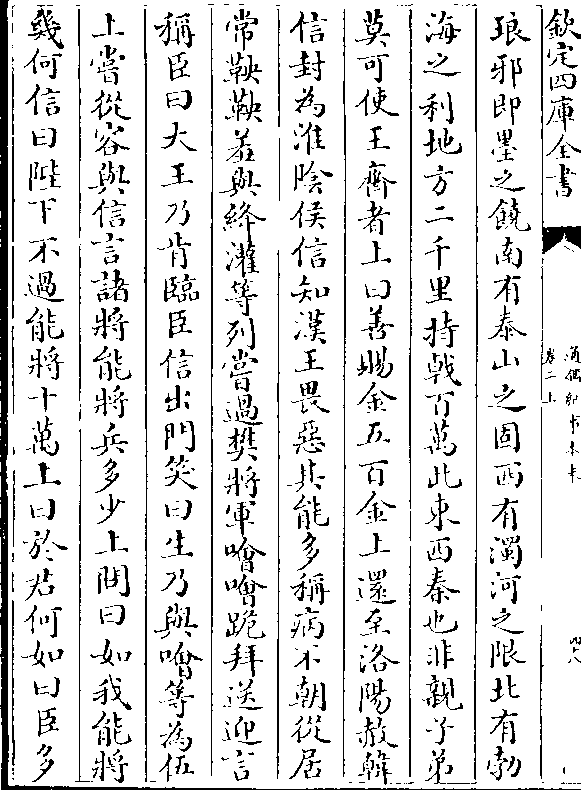 欽定四庫全書
通鑑紀事本末
卷二上
四八
琅邪即墨之饒南有泰山之固西有濁河之限北有勃
海之利地方二千里持戟百萬此東西秦也非親子弟
莫可使王齊者上曰善賜金五百金上還至洛陽赦韓
信封為淮陰侯信知漢王畏惡其能多稱病不朝從居
常鞅鞅羞與絳灌等列嘗過樊將軍噲噲跪拜送迎言
稱臣曰大王乃肯臨臣信出門笑曰生乃與噲等為伍
上嘗從容與信言諸將能將兵多少上問曰如我能將
幾何信曰陛下不過能將十萬上曰於君何如曰臣多